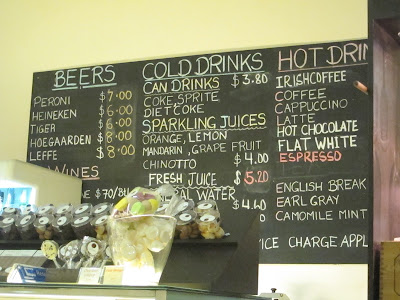 BEERS
PERONI $7.00
HEINEKEN $6.00
TIGER $6.00
HOEGAARDEN $8.00
LEFFE $8.00
WINES
$70/
COLD DRINKS
CAN DRINKS $3.80
COKE, SPRITE
DIET COKE
SPARKLING JUICES
ORANGE, LEMON
MANDARIN, GRAPE FRUIT
CHINOTTO $4.00
FRESH JUICE $5.20
WATER $4.40
HOT DRIN
IRISHCOFFEE
COFFEE
CAPPUCCINO
LATTE
HOT CHOCOLATE
FLAT WHITE
ESPRESSO
ENGLISH BREAK
EARL GRAY
CAMOMILE MINT
ICE CHARGE APPL